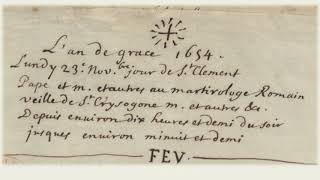 L'an de grace 1654.
Lundy 23.e Nov.bre jour de S.t Clement
Pape et m. et autres au martirologe Romain
veille de S.t Crysogone m. et autres &c.
Depuis environ dix heures et demi du soir
jusques environ minuit et demi
FEV.